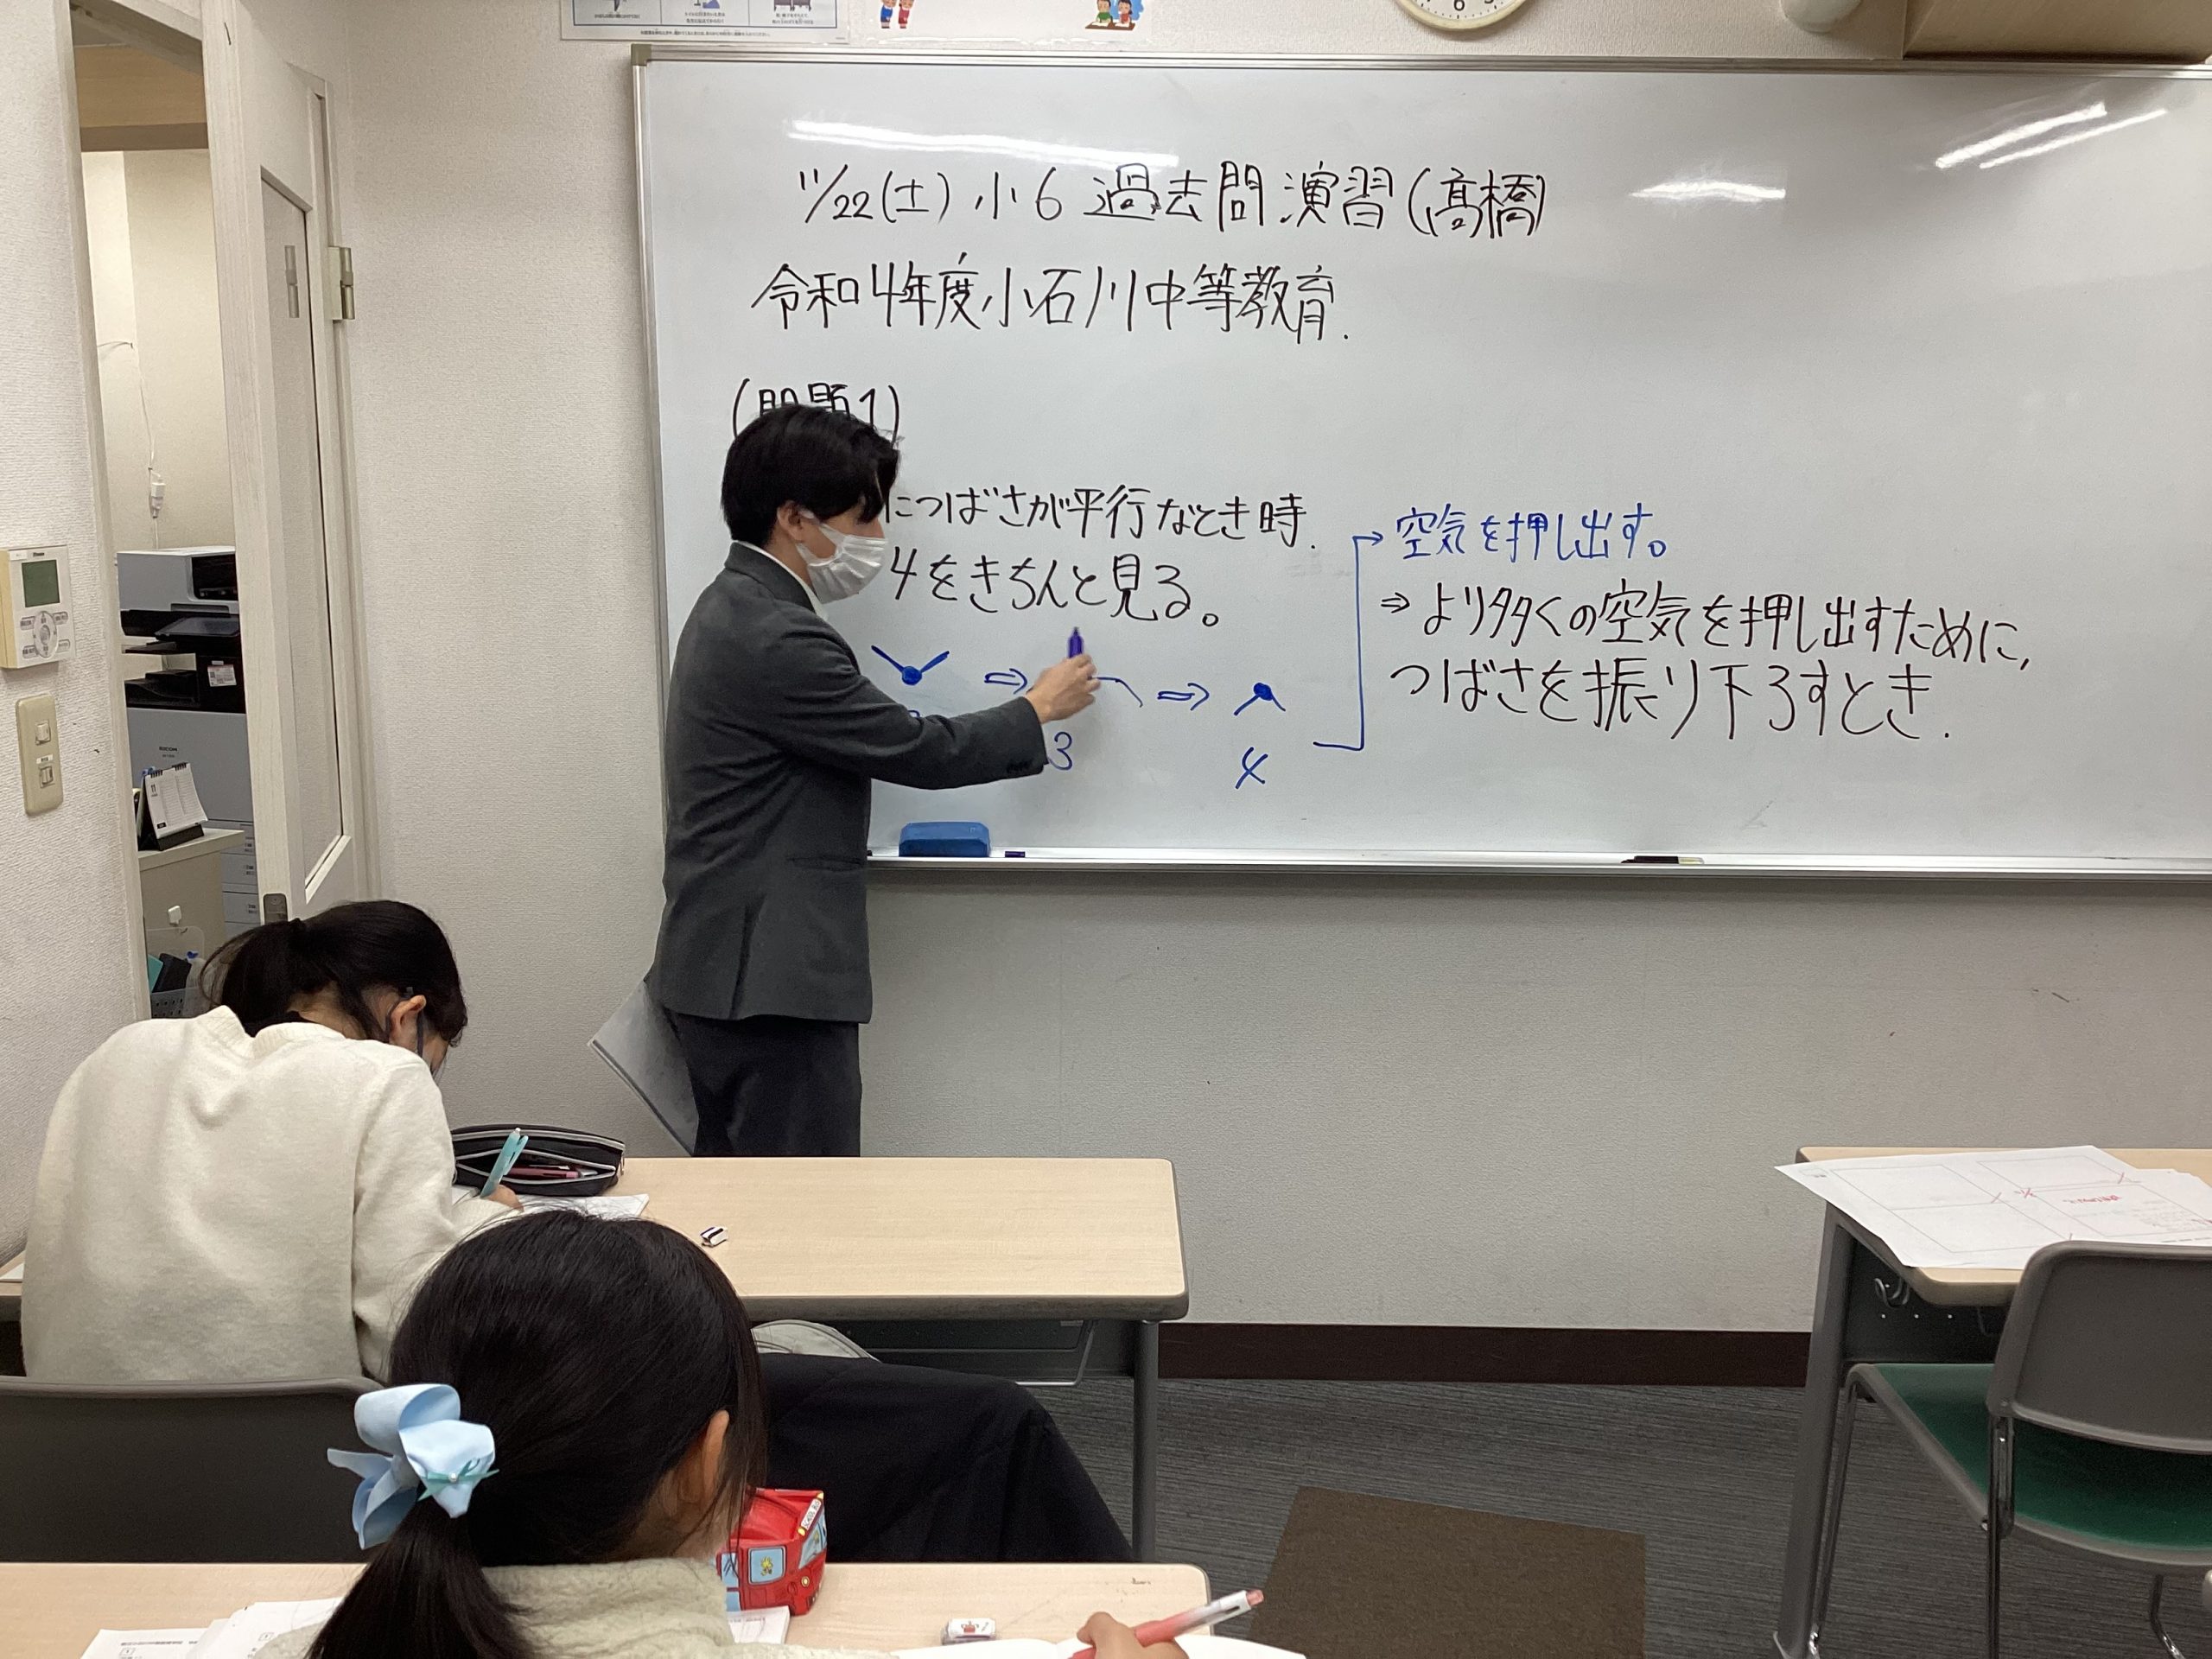 11/22(土) 小6 過去問演習(髙橋)
令和4年度小石川中等教育.
(問題1)
につばさが平行なとき時.
4をきちんと見る。
⇒ ⇒
3 4
→空気を押し出す。
⇒より多くの空気を押し出すために,
つばさを振り下ろすとき.
6
RICOH
11